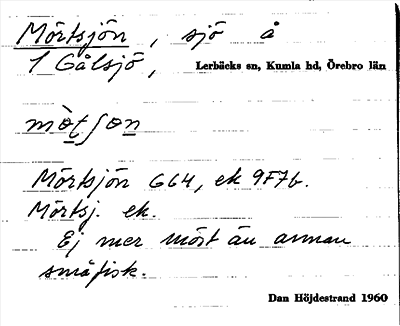 Mörtsjön, sjö å
1 Gålsjö, Lerbäcks sn, Kumla hd, Örebro län
mø̀tʃøn
Mörtsjön G64, ek 9F7b.
Mörtsj. ek.
Ej mer mört än annan
småfisk.
Dan Höjdestrand 1960